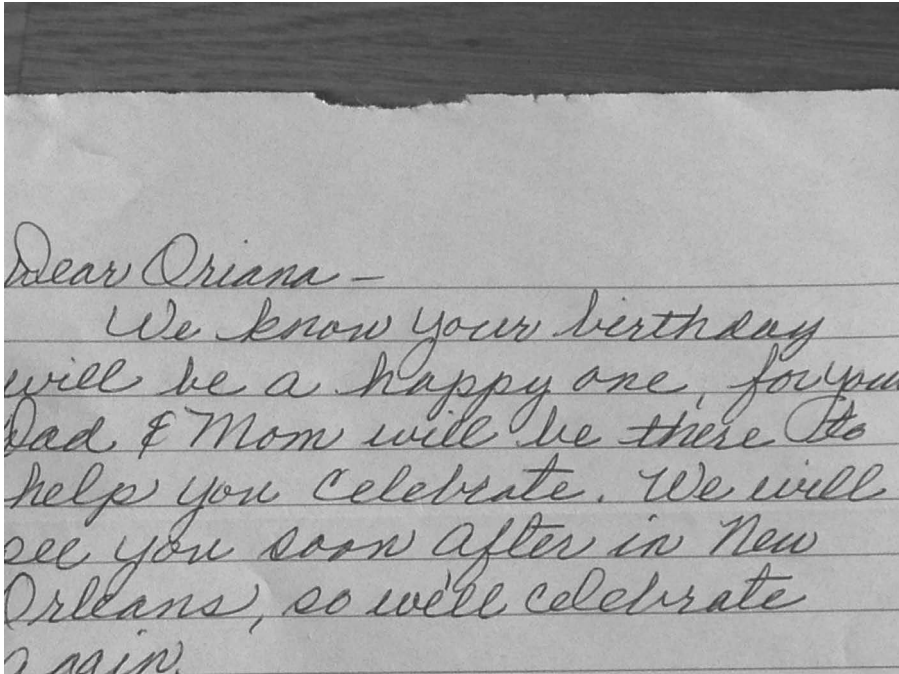 Dear Oriana –
We know your birthday
will be a happy one, for your
Dad & Mom will be there to
help you celebrate. We will
see you soon after in New
Orleans, so we'll celebrate
again.